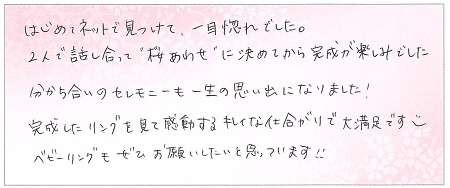 はじめてネットで見つけて、一目惚れでした。
2人で話し合って"桜あわせ"に決めてから完成が楽しみでした
分かち合いのセレモニーも一生の思い出になりました!
完成したリングを見て感動するキレイな仕合がりで大満足です
ベビーリングもぜひお願いしたいと思っています!!